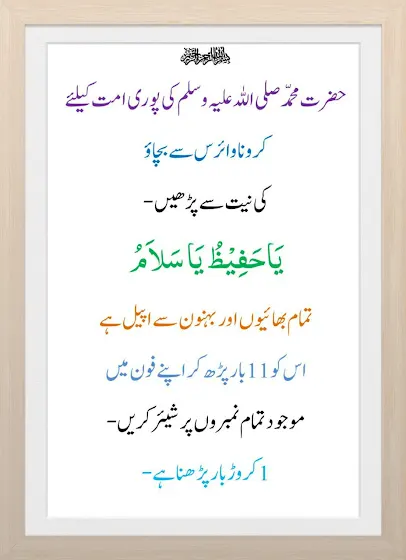 ﷽
حضرت محمدؐ صلی اللہ علیہ وسلم کی پوری امت کیلئے
کرونا وائرس سے بچاؤ
کی نیت سے پڑھیں-
یَا حَفِیْظُ یَا سَلَامُ
تمام بھائیوں اور بہنوں سے اپیل ہے
اس کو 11 بار پڑھ کر اپنے فون میں
موجود تمام نمبروں پر شیئر کریں-
1 کروڑ بار پڑھنا ہے-